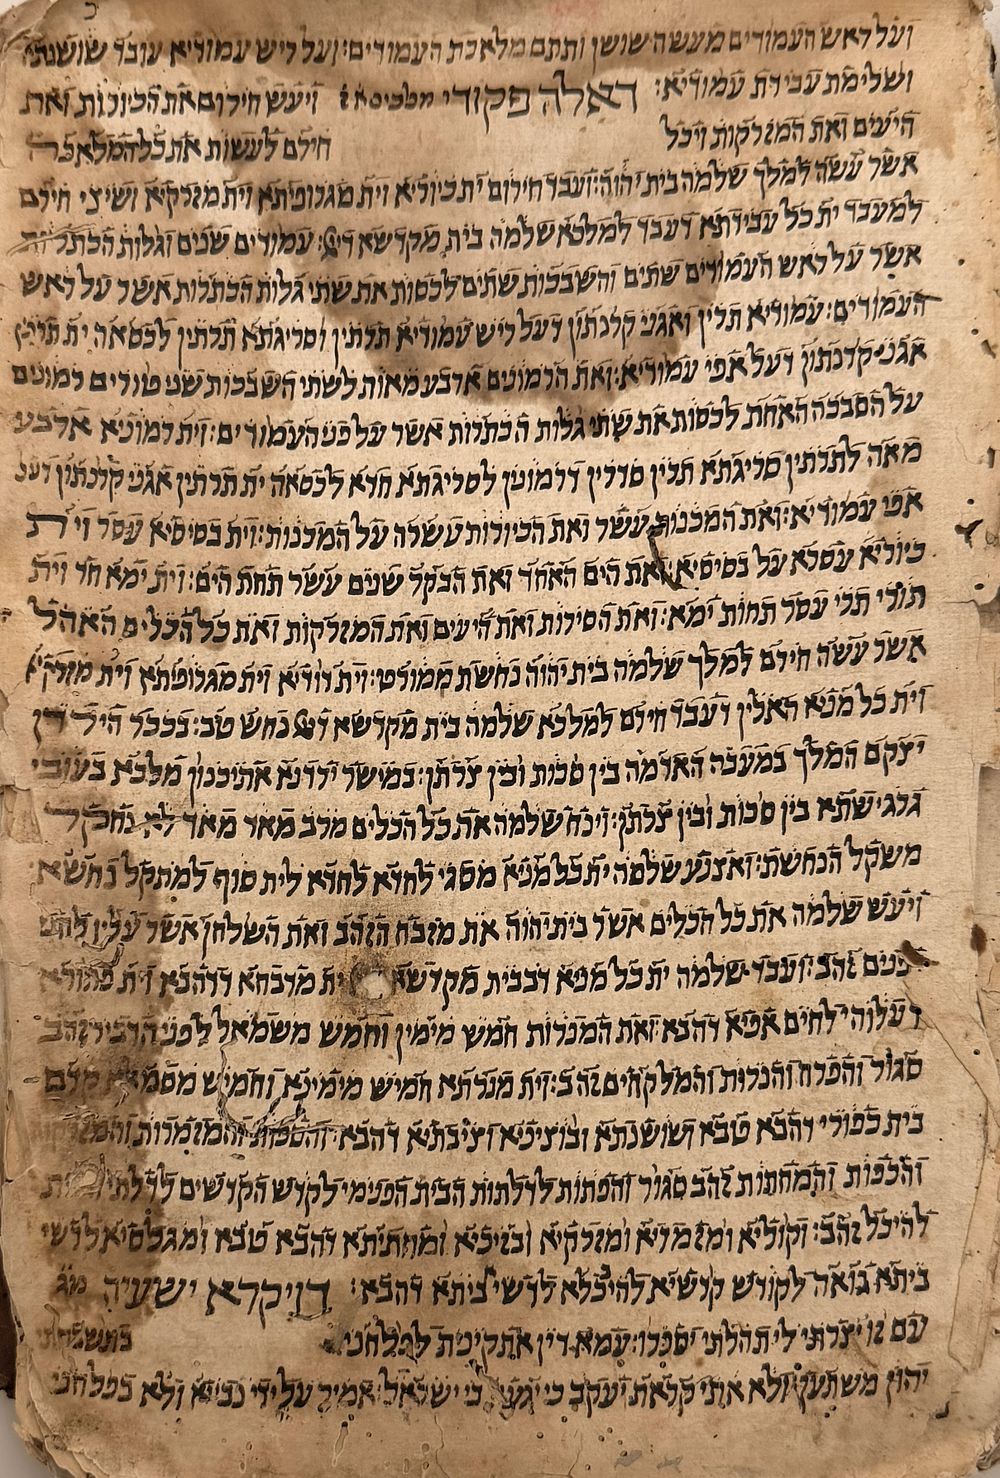 ועל ראש העמודים מעשה שושן ותתם מלאכת העמודים: ועל ריש עמודיא עובד שושנתא
ושלימת עבידת עמודיא: דאלה פקודי מלכים א ז ויעש חירום את הכיורות ואת
היעים ואת המזרקות ויכל חירם לעשות את כל המלאכה
אשר עשה למלך שלמה בית יהוה: ועבד חירום ית כיוריא וית מגרופיתא וית מזרקיא ושיצי חירם
למעבד ית כל עבידתא דעבד למלכא שלמה בית מקדשא דיי: עמודים שנים וגלות הכתרות
אשר על ראש העמודים שתים והשבכות שתים לכסות את שתי גלות הכתרות אשר על ראש
העמודים: עמודיא תרין ואגני קרנתון דעל ריש עמודיא תרתין וסריגתא תרתין לכסאה ית תרתין
אגני קרנתון דעל אפי עמודיא: ואת הרמונים ארבע מאות לשתי השבכות שני טורים רמונים
על השבכה האחת לכסות את שתי גלות הכתרות אשר על פני העמודים: וית רמוניא ארבע
מאה לתרתין סריגתא תרין סדרין דרמונין לסריגתא חדא לכסאה ית תרתין אגני קרנתון דעל
אפי עמודיא: ואת המכנות עשר ואת הכיורות עשרה על המכנות: וית בסיסיא עסר וית
כיוריא עסרא על בסיסיא: ואת הים האחד ואת הבקר שנים עשר תחת הים: וית ימא חד וית
תורי תרי עסר תחות ימא: ואת הסירות ואת היעים ואת המזרקות ואת כל הכלים האהל
אשר עשה חירם למלך שלמה בית יהוה נחשת ממורט: וית דודיא וית מגרופיתא וית מזרקיא
וית כל מניא האלין דעבד חירם למלכא שלמה בית מקדשא דיי נחש טב: בככר הירדן
יצקם המלך במעבה האדמה בין סכות ובין צרתן: במישר ירדנא אתיכנון מלכא בעובי
גרגישתא בין סכות ובין צרתן: וינח שלמה את כל הכלים מרב מאד מאד לא נחקר
משקל הנחשת: ואצנע שלמה ית כל מניא מסגי לחדא לחדא לית סוף למתקל נחשא
ויעש שלמה את כל הכלים אשר בית יהוה את מזבח הזהב ואת השלחן אשר עליו לחם
פנים זהב: ועבד שלמה ית כל מניא דבבית מקדשא ית מדבחא דדהבא וית פתורא
דעלוהי לחים אפיא דהבא: ואת המנרות חמש מימין וחמש משמאל לפני הדביר זהב
סגור והפרח והנרות והמלקחים זהב: וית מנרתא חמיש מימינא וחמיש מסמאלא קדם
בית כפורי דהבא טבא ושושנתא ובוציניא וציבתיא דהבא: והספות והמזמרות והמזרקות
והכפות והמחתות זהב סגור והפתות לדלתות הבית הפנימי לקדש הקדשים לדלתי הבית
להיכל זהב: וקוליא ומזמריא ומזרקיא ובזיכיא ומחתיתא דהבא טבא ומגלסיא לדשי
ביתא גואה לקודש קדשיא להיכלא לדשי ביתא דהבא: דויקרא ישעיה מג
עם זו יצרתי לי תהלתי יספרו: עמא דין אתקינית לפלחני בתשבחתי
יהון משתען: ולא אתי קראת יעקב כי יגעת בי ישראל: אמיר על ידי נבייא ולא בפלחני